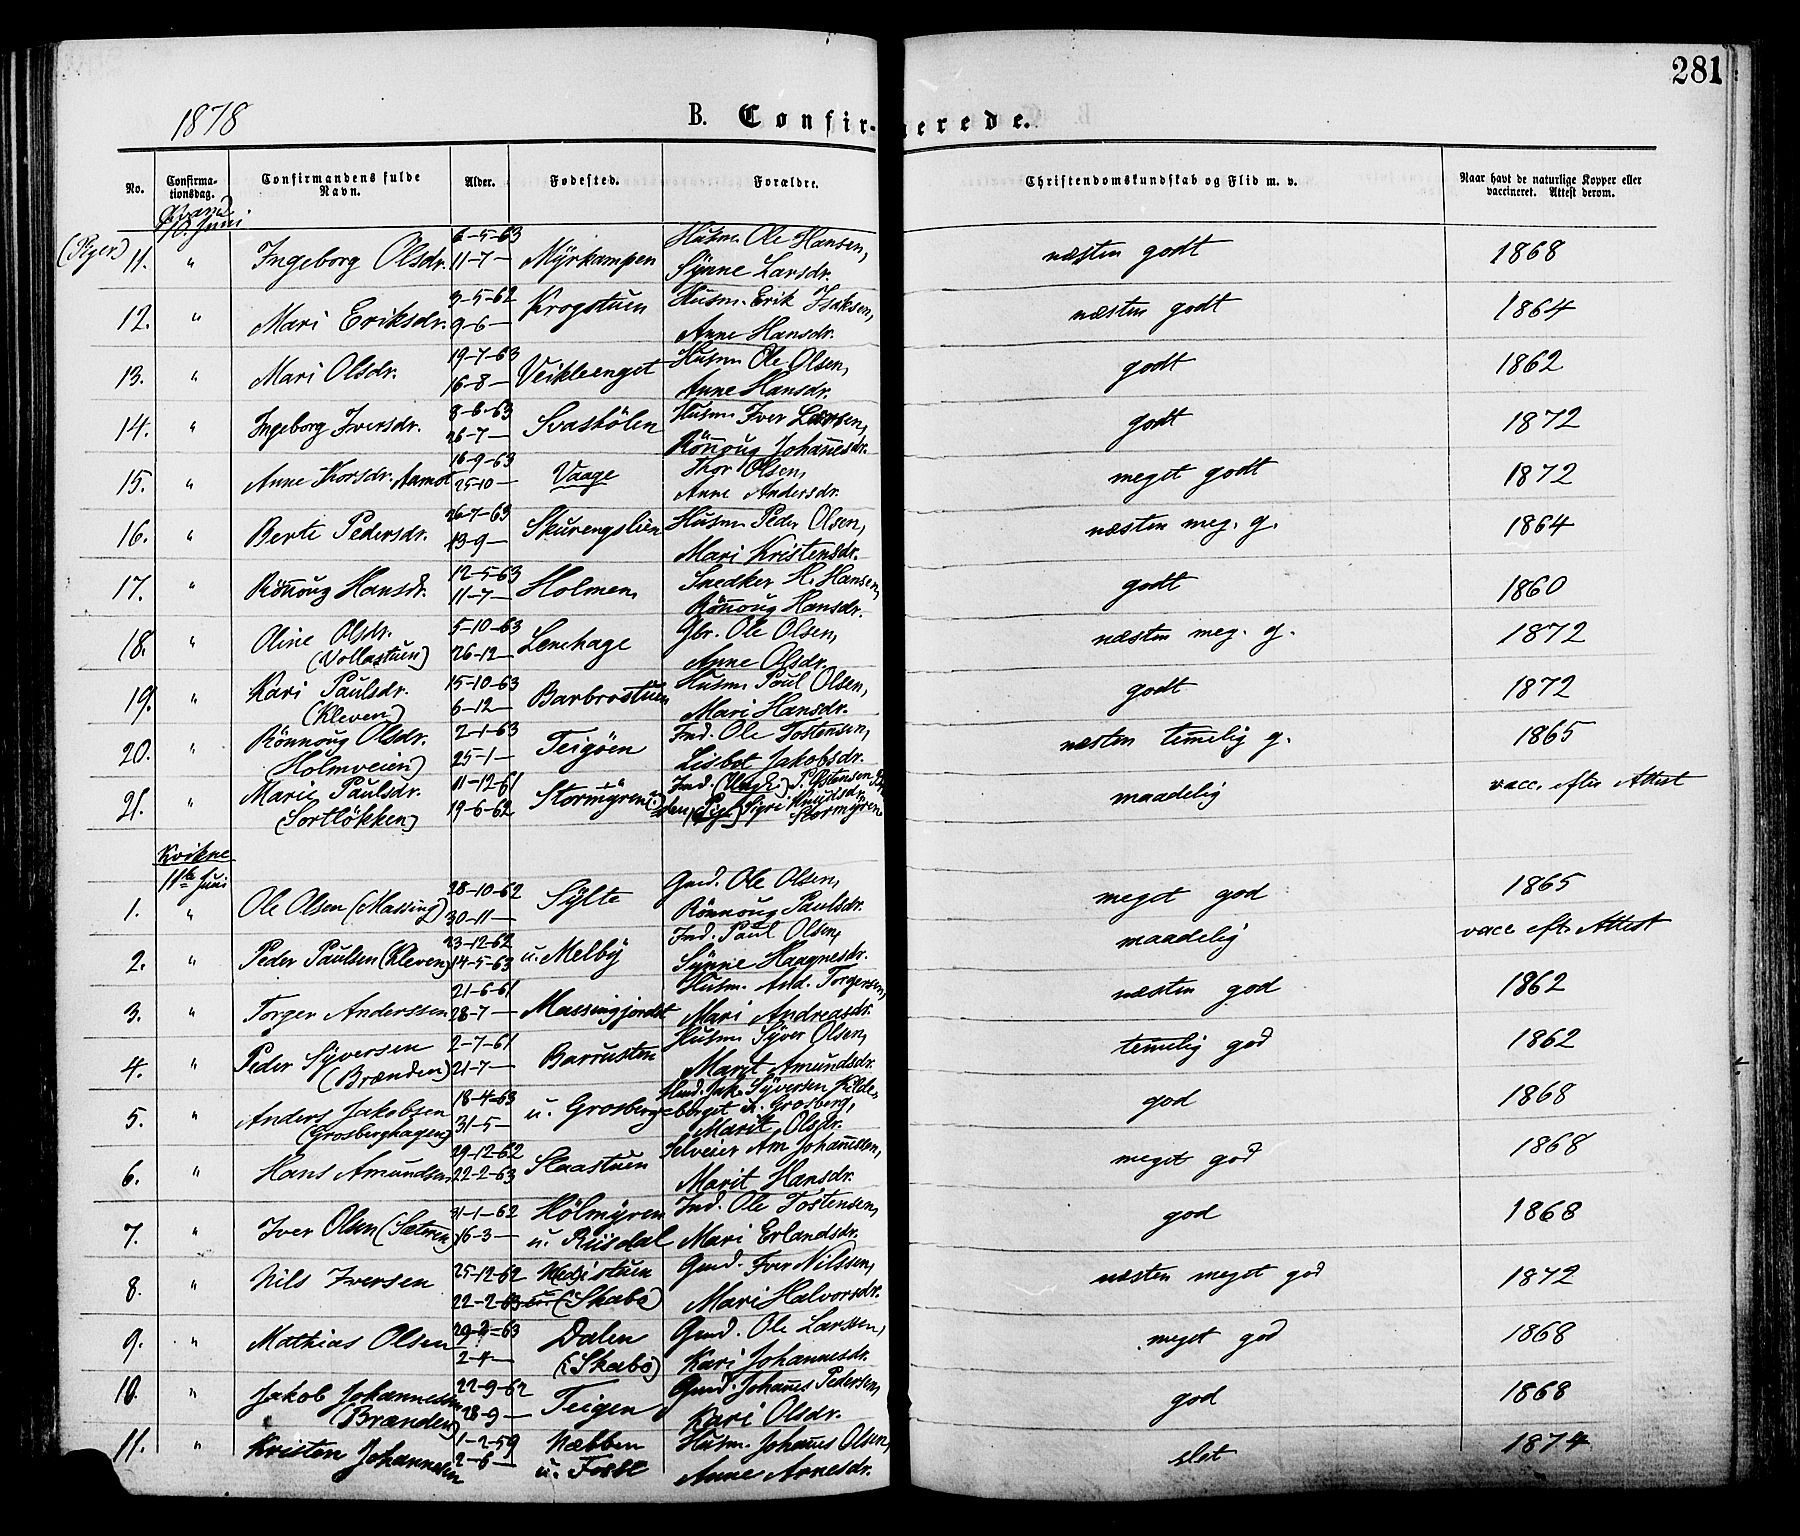 281
1878
B. Confirmerede.
No. | Confirmationsdag. | Confirmandens fulde Navn. | Alder. | Fødested. | Forældre. | Christendomskundskab og Flid m. v. | Naar havt de naturlige Kopper eller vaccineret. Attest derom.
10. Juni
(Piger)
11. | " | Ingeborg Olsdr. | 6-5-63 11-7 — | Myrkampen | Husm. Ole Hansen, Synne Larsdr. | næsten godt | 1868
12. | " | Mari Eriksdr. | 3-5-62 9-6 — | Krogstuen | Husm. Erik Isaksen, Anne Hansdr. | næsten godt | 1864
13. | " | Mari Olsdr. | 19-7-63 16-8 — | Veikleenget | Husm. Ole Olsen, Anne Hansdr. | godt | 1862
14. | " | Ingeborg Iversdr. | 8-6-63 26-7 — | Svashölen | Husm. Iver Larsen, Rönnoug Johan̄esdr. | godt | 1872
15. | " | Anne Thorsdr. Aamot | 16-9-63 25-10 — | Vaage | Thor Olsen, Anne Andersdr. | meget godt | 1872
16. | " | Berte Pedersdr. | 26-7-63 13-9 — | Skurengslien | Husm. Peder Olsen, Mari Kristensdr. | næsten meg. g. | 1864
17. | " | Rön̄oug Hansdr. | 12-5-63 11-7 — | Holmen, | Snedker H. Hansen, Rön̄oug Hansdr. | godt | 1860
18. | " | Oline Olsdr. (Vollastuen) | 5-10-63 26-12 — | Lenehage | Gbr. Ole Olsen, Anne Olsdr. | næsten meg. g. | 1872
19. | " | Kari Paulsdr. (Kleven) | 15-10-63 6-12 — | Barbrostuen | Husm. Paul Olsen, Mari Hansdr. | godt | 1872
20. | " | Rönnoug Olsdr. (Holmveien) | 2-1-63 25-1 — | Teigöen | Ind. Ole Tostensen, Lisbet Jakobsdr. | næsten tem̄elig g. | 1865
21. | " | Marie Paulsdr. (Sortløkken) | 11-12-61 19-6-62 | Stormyren | Ind. (Ungk.) P. Östensen (Pige) Sigri Knudsdr. Stormyren | maadelig | vacc. efter Attest
Kvikne
11te Juni
1. | " | Ole Olsen (Massing) | 28-10-62 30-11 — | Sylte | Gmd. Ole Olsen, Rönnoug Paulsdr. | meget god | 1865
2. | " | Peder Paulsen (Kleven) | 23-12-62 14-5-63 | u. Melby | Ind. Paul Olsen, Synne Haagnesdr. | maadelig | vacc. eft. Attest
3. | " | Torger Anderssen | 21-6-61 28-7 — | Massingjordet | Husm. And. Torgersen, Mari Andreasdr. | næsten god | 1862
4. | " | Peder Syversen (Brænden) | 2-7-61 21-7 — | Barrusten | Husm. Syver Olsen, Marit Amundsdr. | tem̄elig god | 1862
5. | " | Anders Jakobsen (Grosberghagen) | 18-4-63 31-5 — | u. Grosberg | Jak. Syversen Kildeberget u. Grosberg, Marit Olsdr. | god | 1868
6. | " | Hans Amundsen | 29-12-62 22-2-63 | Slaastuen | Selveier Am. Johan̄essen, Marit Hansdr. | meget god | 1868
7. | " | Iver Olsen (Sæteren) | 31-1-62 16-3 — | Hölmyren u. Riisdal | Ind. Ole Tostensen, Mari Erlandsdr. | god | 1868
8. | " | Nils Iversen | 25-12-62 22-2-63 | Nedistuen (i Skabo) | Gmd. Iver Nilssen, Mari Halvorsdr. | næsten meget god | 1872
9. | " | Mathias Olsen | 20-2-63 2-4 — | Dalen (i Skabo) | Gmd. Ole Larssen, Kari Johannesdr. | meget god | 1868
10. | " | Jakob Johannessen (Brænden) | 22-9-62 28-9 — | Teigen | Gmd. Johan̄es Pedersen, Kari Olsdr. | god | 1868
11. | " | Kristen Johannessen | 1-2-59 2-6 — | Næbben u. Fosse | Husm. Johan̄es Olsen, Anne Arnesdr. | slet | 1874